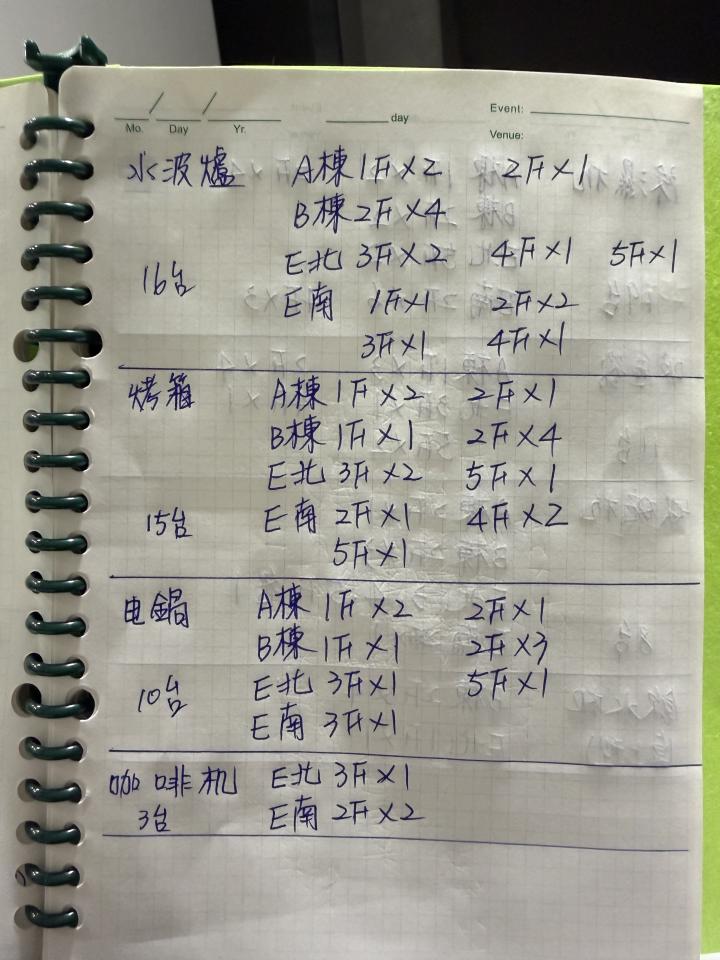 Mo. / Day / Yr. day Event:
Venue:
水波爐 A棟 1F×2 2F×1
B棟 2F×4
E北 3F×2 4F×1 5F×1
16台
E南 1F×1 2F×2
3F×1 4F×1
烤箱 A棟 1F×2 2F×1
B棟 1F×1 2F×4
E北 3F×2 5F×1
15台 E南 2F×1 4F×2
5F×1
电鍋 A棟 1F×2 2F×1
B棟 1F×1 2F×3
10台 E北 3F×1 5F×1
E南 3F×1
咖啡机 E北 3F×1
3台 E南 2F×2